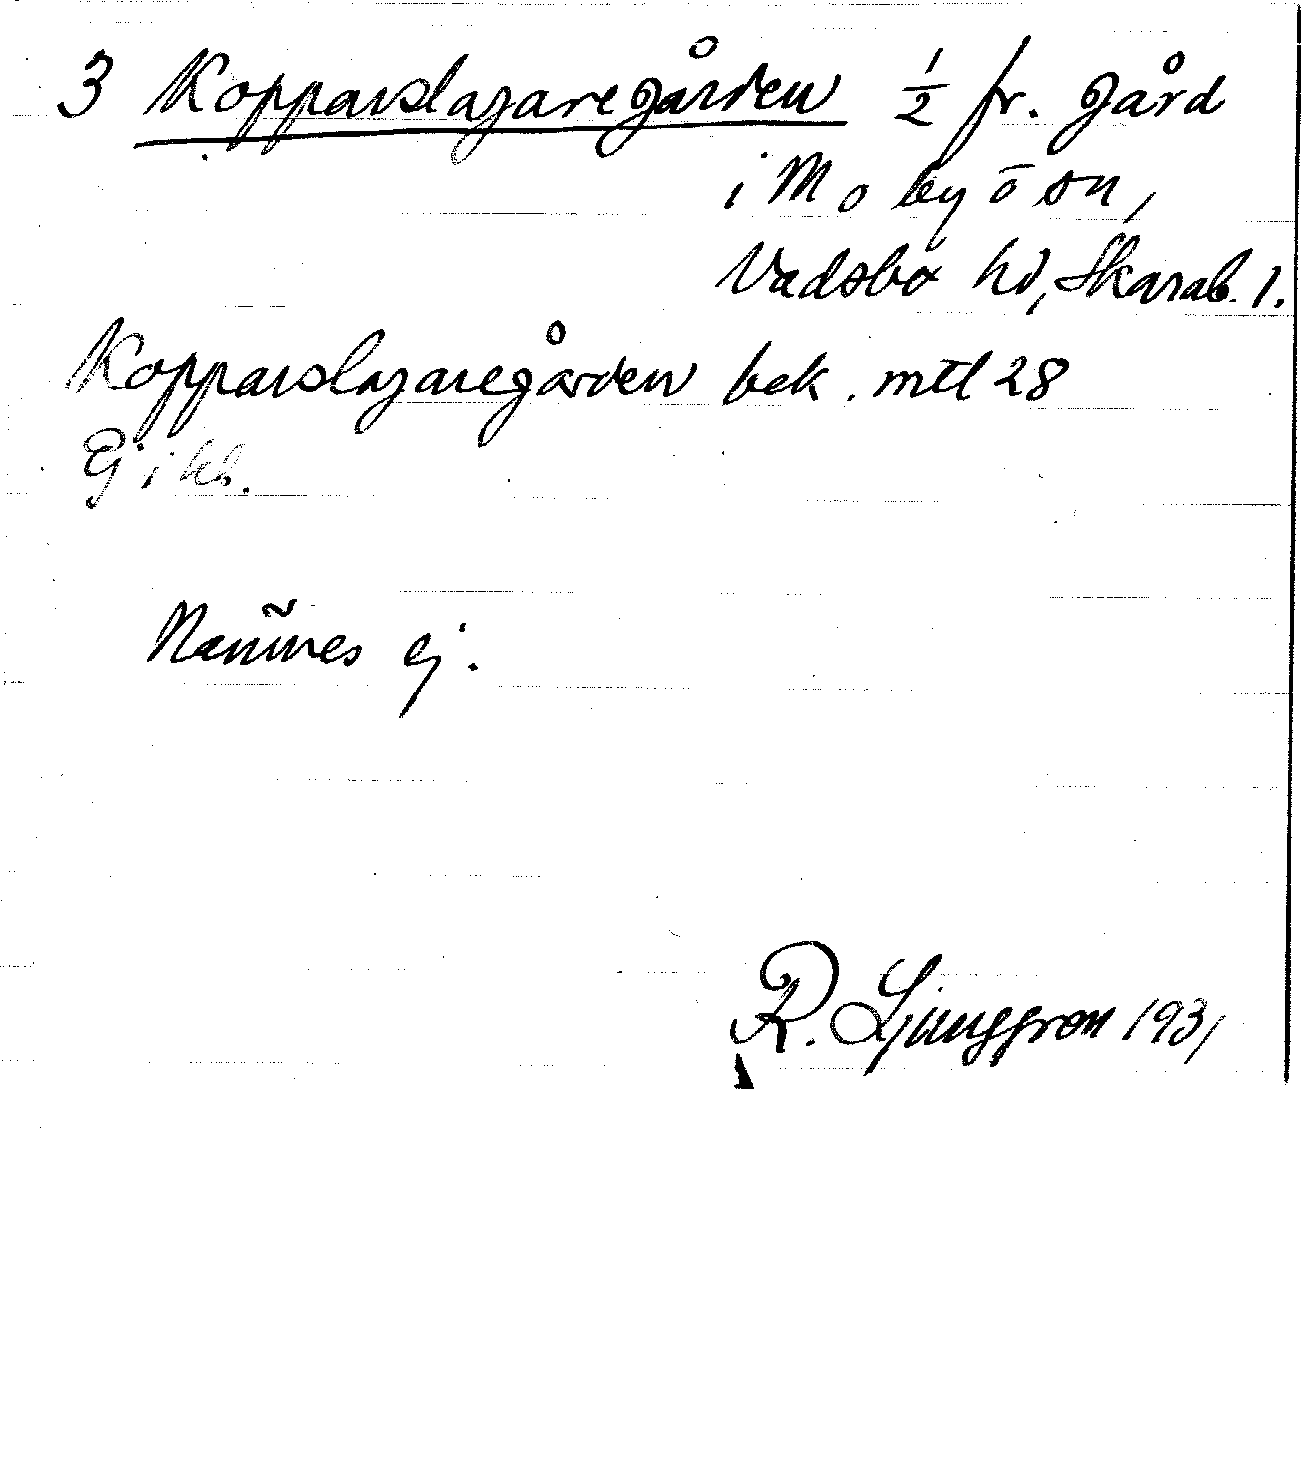 3 Kopparslagaregården 1/2 fr. gård
i Mo by o sn,
Vadsbo hd, Skarab. l.
Kopparslagaregården bek. mtl 28
Ej i kb.
Nämnes ej.
R. Ljunggren 1931